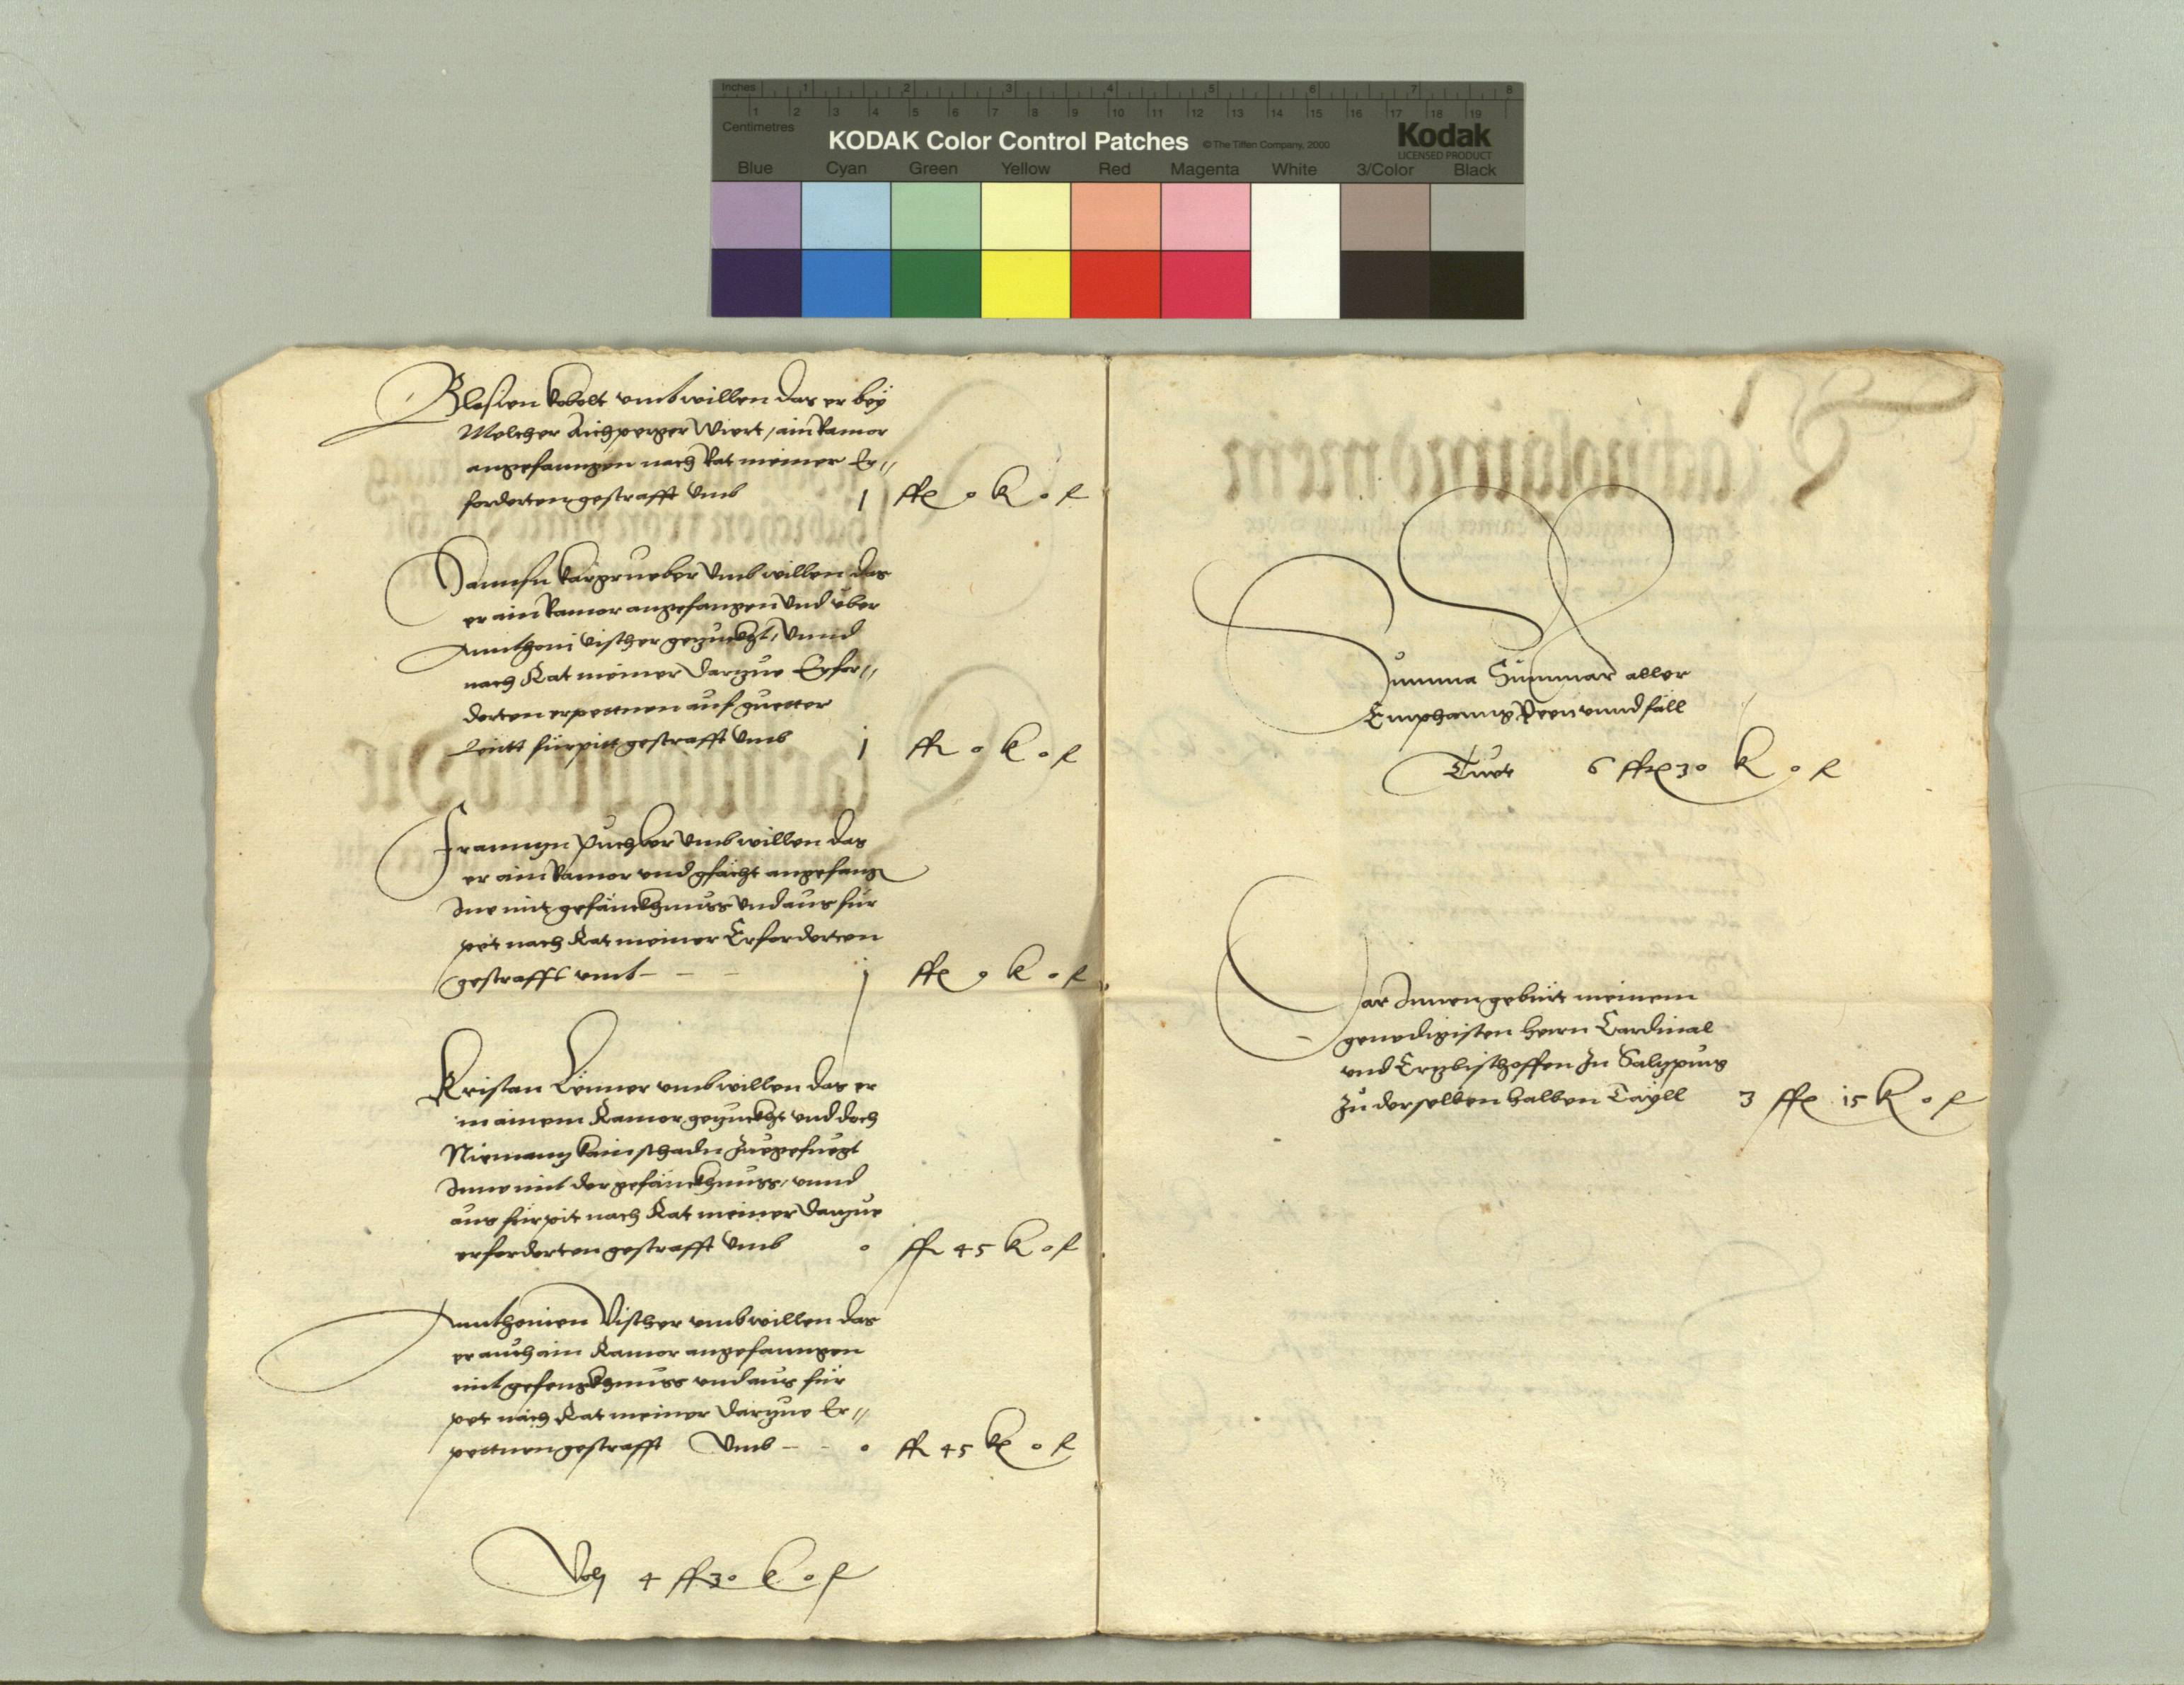 Inches 1 2 3 4 5 6 7 8
1 2 3 4 5 6 7 8 9 10 11 12 13 14 15 16 17 18 19
Centimetres
KODAK Color Control Patches © The Tiffen Company, 2000 Kodak
LICENSED PRODUCT
Blue Cyan Green Yellow Red Magenta White 3/Color Black
Blasien Kobolt umb willen das er bey
Melcher Aichperger Wiert / ain Ramor
angefanngen nach Rat meiner Er//
forderten gestrafft Umb 1 o k o
Hannsn umb willen das
er ain Ramor angefangen Und über
Annthoni Vischer gezuckht, Unnd
nach Rat meiner Darzue Erfor//
derten erpettnen auf guetter
Leütt fürpitt gestrafft Umb 1 o k o
Franntzn Puchler Umb willen das
er ain Ramor und gfächt angefang
Ine mit gefänckhnuss Und aus für
pet nach Rat meiner Erforderten
gestrafft umb - - - 1 o k o
Kristan umb willen das er
in ainem Ramor gezuckht und doch
Niemantz kain schadn Zuegefuegt
Inne mit der gefänckhnuss, unnd
aus fürpit nach Rat meiner Darzue
erforderten gestrafft Umb o 45 k o
Annthonien Vischer umb willen das
er auch ain Ramor angefanngen
mit gefengkhnuss und aus für
pet nach Rat meiner Darzue Er//
pettnen gestrafft Umb - - o 45 k o
4 30 k o
Summa Summar aller
Emphanng Peen unnd fäll
Tuet 6 30 k o
Dar Innen gebürt meinem
genedigisten herrn Cardinal
und Ertzbischoffen Zu Saltzpurg
Zu derselben halben Tayll 3 15 k o